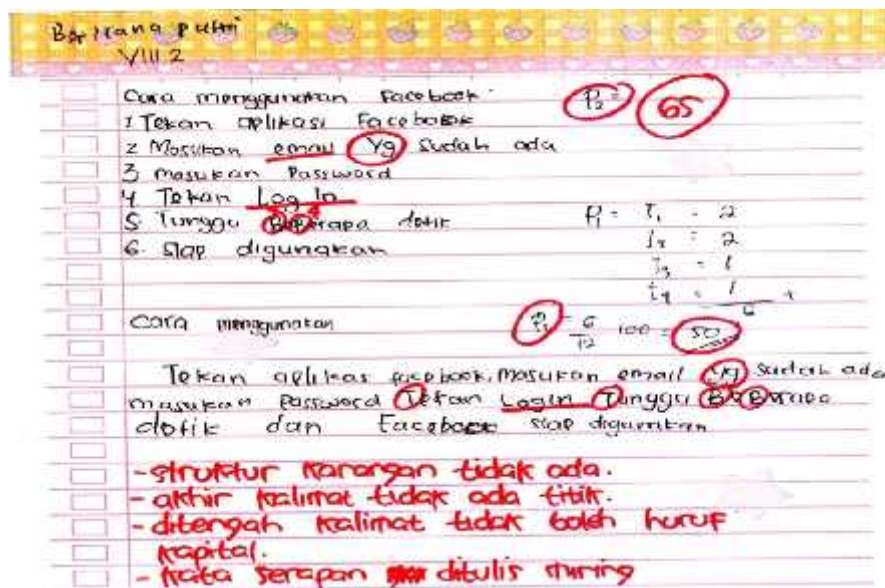 Berliana putri
VIII 2
Cara menggunakan Facebook.
P2 = 65
1 Tekan aplikasi Facebook
2 Masukan email Yg Sudah ada
3 masukan Password
4 Tekan Log In
5 Tunggu BeBerapa detik
P1 = I1 = 2
6. Siap digunakan
I2 = 2
I3 = 1
I4 = 1 +
6
Cara menggunakan
P1 = 6
12 100 = 50
Tekan aplikas facebook, masukan email Yg Sudah ada
masukan Password Tekan Login Tunggu BeBerapa
detik dan Facebook siap digunakan
- struktur karangan tidak ada.
- akhir kalimat tidak ada titik.
- ditengah kalimat tidak boleh huruf
kapital.
- kata serapan ditulis miring